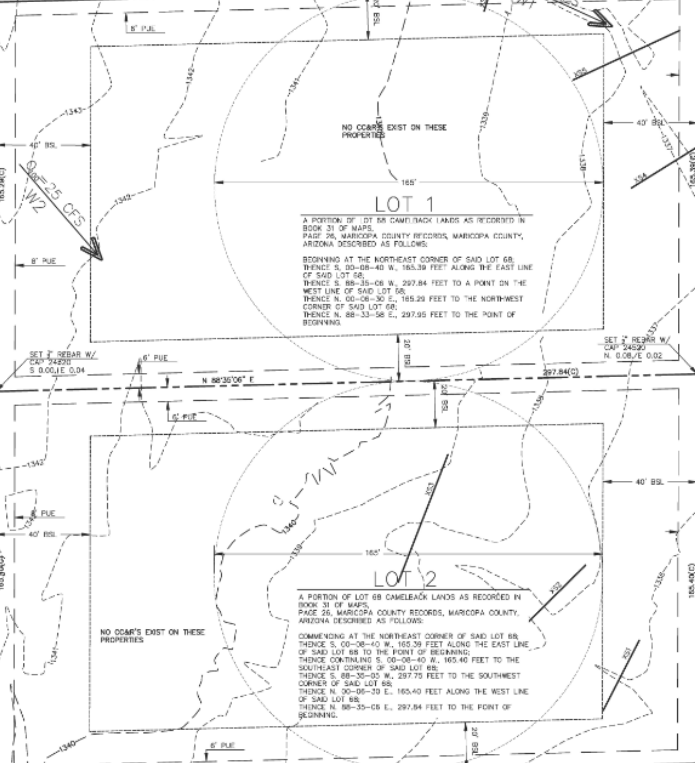 8' PUE
20' BSL
XS5
1342
1341
1343
1339
1338
1337
NO CC&R'S EXIST ON THESE
PROPERTIES
40' BSL
40' BSL
XS4
165.29(C)
165.39(C)
Q100=25 CFS
W2
165'
1342
LOT 1
A PORTION OF LOT 68 CAMELBACK LANDS AS RECORDED IN
BOOK 31 OF MAPS,
PAGE 26, MARICOPA COUNTY RECORDS, MARICOPA COUNTY,
ARIZONA DESCRIBED AS FOLLOWS:
BEGINNING AT THE NORTHEAST CORNER OF SAID LOT 68;
THENCE S. 00-08-40 W., 165.39 FEET ALONG THE EAST LINE
OF SAID LOT 68;
THENCE S. 88-35-06 W., 297.84 FEET TO A POINT ON THE
WEST LINE OF SAID LOT 68;
THENCE N. 00-06-30 E., 165.29 FEET TO THE NORTHWEST
CORNER OF SAID LOT 68;
THENCE N. 88-33-58 E., 297.95 FEET TO THE POINT OF
BEGINNING.
8' PUE
1337
20' BSL
SET ½" REBAR W/
CAP 24520
S 0.00,E 0.04
SET ½" REBAR W/
CAP 24520
N. 0.08,E 0.02
6' PUE
N 88'35'06" E
297.84(C)
6' PUE
20' BSL
1338
1342
XS3
40' BSL
8' PUE
40' BSL
1340
1339
165'
LOT 2
165.40(C)
1338
XS2
A PORTION OF LOT 68 CAMELBACK LANDS AS RECORDED IN
BOOK 31 OF MAPS,
PAGE 26, MARICOPA COUNTY RECORDS, MARICOPA COUNTY,
ARIZONA DESCRIBED AS FOLLOWS:
COMMENCING AT THE NORTHEAST CORNER OF SAID LOT 68;
THENCE S. 00-08-40 W., 165.39 FEET ALONG THE EAST LINE
OF SAID LOT 68 TO THE POINT OF BEGINNING;
THENCE CONTINUING S. 00-08-40 W., 165.40 FEET TO THE
SOUTHEAST CORNER OF SAID LOT 68;
THENCE S. 88-35-05 W., 297.75 FEET TO THE SOUTHWEST
CORNER OF SAID LOT 68;
THENCE N. 00-06-30 E., 165.40 FEET ALONG THE WEST LINE
OF SAID LOT 68;
THENCE N. 88-35-06 E., 297.84 FEET TO THE POINT OF
BEGINNING.
NO CC&R'S EXIST ON THESE
PROPERTIES
1341
XS1
1340
8' PUE
20' BSL